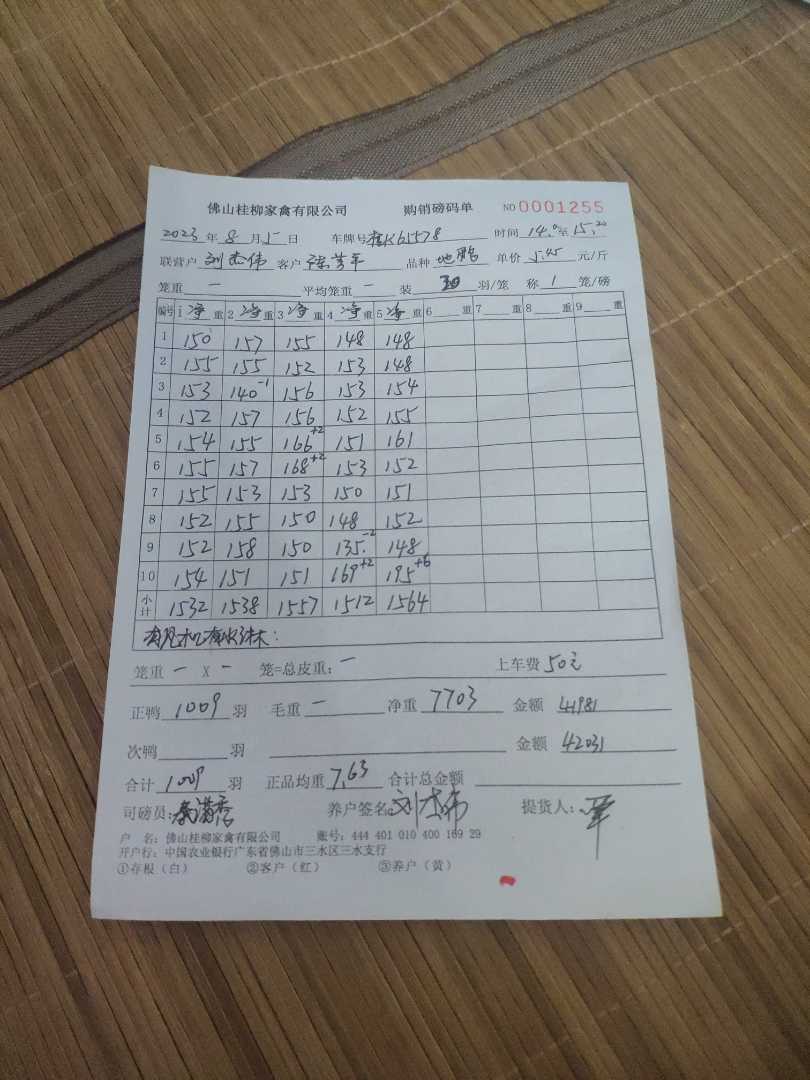 佛山桂柳家禽有限公司 购销磅码单 NO 0001255
2023 年 8 月 5 日 车牌号 桂K61578 时间 14.0 至 15.20
联营户 刘杰伟 客户 品种 地鸭 单价 5.45 元/斤
笼重 一 平均笼重 一 装 羽/笼 称 1 笼/磅
编号 1 净 重 2 净 重 3 净 重 4 净 重 5 净 重 6 重 7 重 8 重 9 重
1 150 157 155 148 148
2 155 155 152 153 148
3 153 140-1 156 153 154
4 152 157 156 152 155
5 154 155 166+2 151 161
6 155 157 168+2 153 152
7 155 153 153 150 151
8 152 155 150 148 152
9 152 158 150 135.-2 148
10 154 151 151 169+2 195+6
小计 1532 1538 1557 1512 1564
笼重 一 X 一 笼=总皮重: 一 上车费 50元
正鸭 1009 羽 毛重 一 净重 7703 金额 41981
次鸭 羽 金额 42031
合计 1009 羽 正品均重 7.63 合计总金额
司磅员: 养户签名: 刘杰伟 提货人:
户 名: 佛山桂柳家禽有限公司 账号: 444 401 010 400 169 29
开户行: 中国农业银行广东省佛山市三水区三水支行
①存根(白) ②客户(红) ③养户(黄)